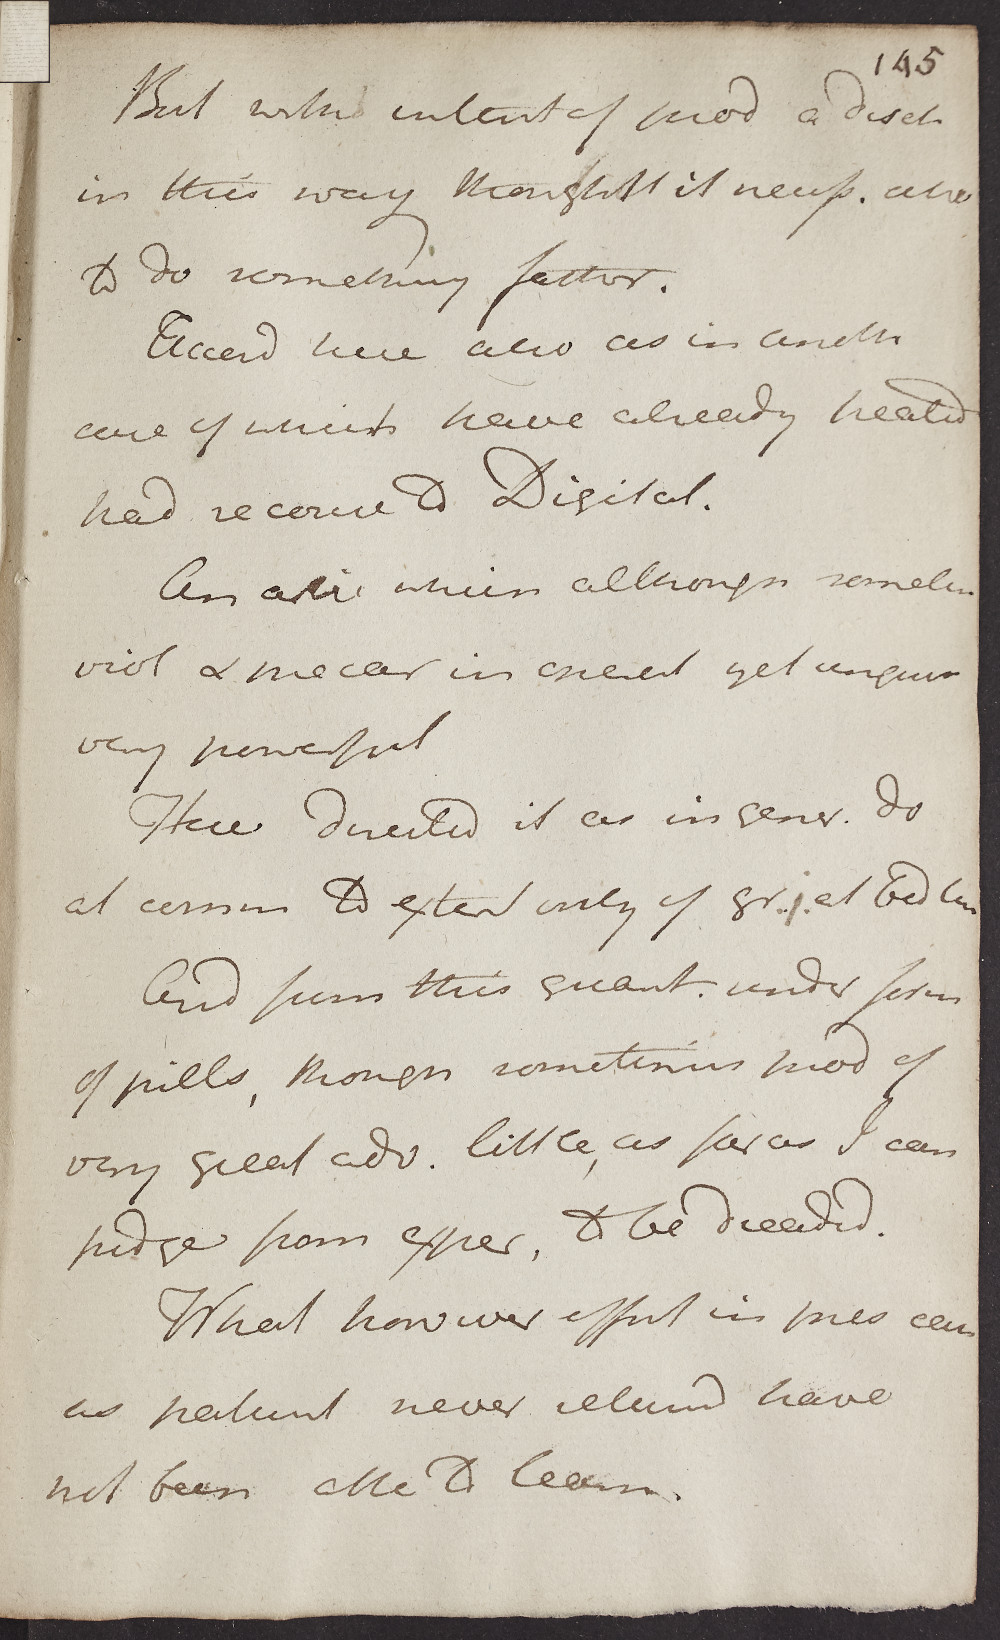 145
But with intent of prod a disch
in this way thought it necess. also
to do something farther.
Accord here also as in anoth
case of which have already treated
had recourse to Digital.
An artic which although sometim
viol & precar in operat yet unques
very powerful
Here directed it as in gener. do
at commen to extent only of gr.j. at bed tim
And from this quant. under form
of pills, though sometimes prod of
very great adv. little, as far as I can
judge from exper, to be dreaded.
What however effect in pres case
as patient never returnd have
not been able to learn.